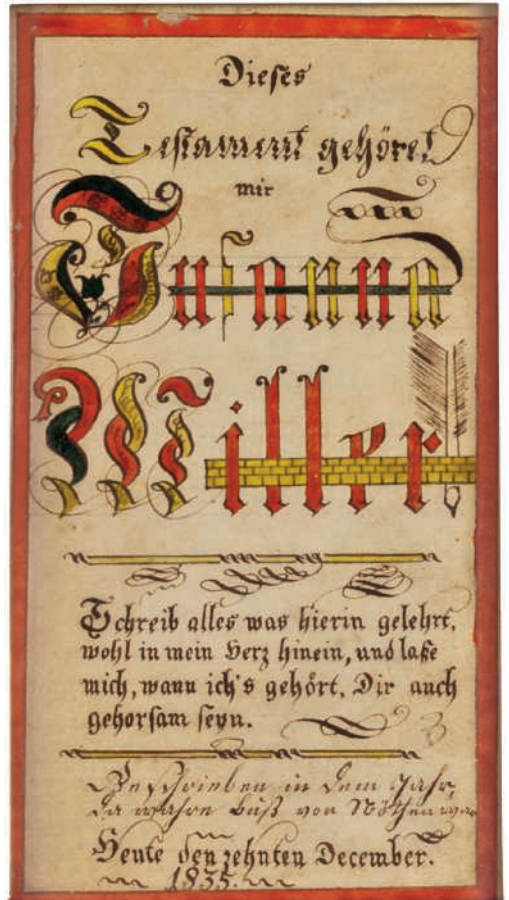 Dieses
Testament gehöret
mir
Susanna
Miller
Schreib alles was hierin gelehrt,
wohl in mein Herz hinein, und laße
mich, wann ich's gehört, Dir auch
gehorsam seyn.
Geschrieben in dem Jahr,
da wahre Buß von Nöthen war
Heute den zehnten December.
1835.